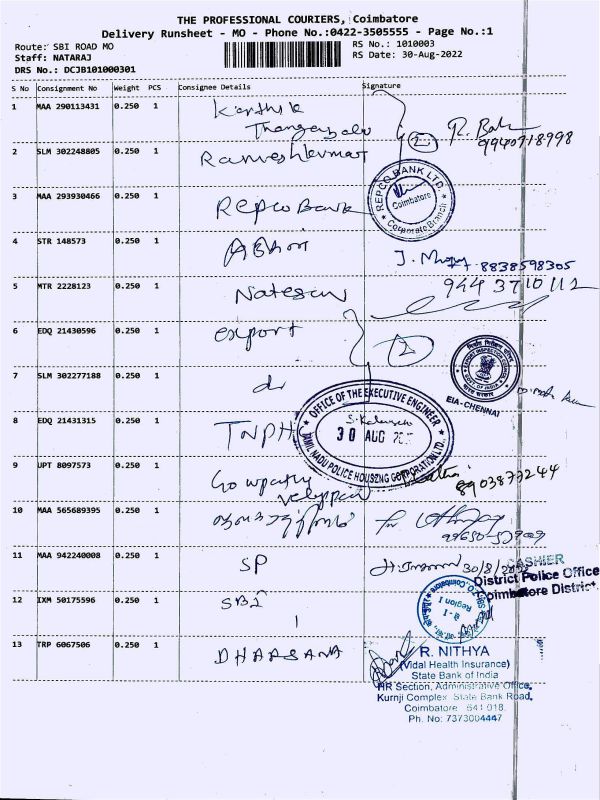 THE PROFESSIONAL COURIERS, Coimbatore
Delivery Runsheet - MO - Phone No.:0422-3505555 - Page No.:1
Route: SBI ROAD MO
RS No.: 1010003
Staff: NATARAJ
RS Date: 30-Aug-2022
DRS No.: DCJB101000301
S No Consignment No Weight PCS Consignee Details Signature
1 MAA 290113431 0.250 1 Karthik
Thangavalu
2 R. Bala
9940718998
2 SLM 302248805 0.250 1 Rameshkumar
REPCO BANK LTD.
Coimbatore
Corporate Branch
3 MAA 293930466 0.250 1 Repco Bank
4 STR 148573 0.250 1 J.
8838598305
5 MTR 2228123 0.250 1 Natesan 944 3710112
6 EDQ 21430596 0.250 1 export 2
EXPORT INSPECTION COUNCIL
EIA-CHENNAI
7 SLM 302277188 0.250 1 do
OFFICE OF THE EXECUTIVE ENGINEER
30 AUG
TAMIL NADU POLICE HOUSING CORPORATION LTD.,
8 EDQ 21431315 0.250 1 TNPH
9 UPT 8097573 0.250 1 Gowpathy
Velappan
8903877244
10 MAA 565689395 0.250 1
11 MAA 942240008 0.250 1 SP 30/8/
CASHIER
District Police Office
Coimbatore District.
12 IXM 50175596 0.250 1 SBI
1
Region I
13 TRP 6067506 0.250 1 DHAASANA
R. NITHYA
(Vidal Health Insurance)
State Bank of India
HR Section, Administrative Office,
Kurnji Complex State Bank Road,
Coimbatore 641 018.
Ph. No: 7373004447